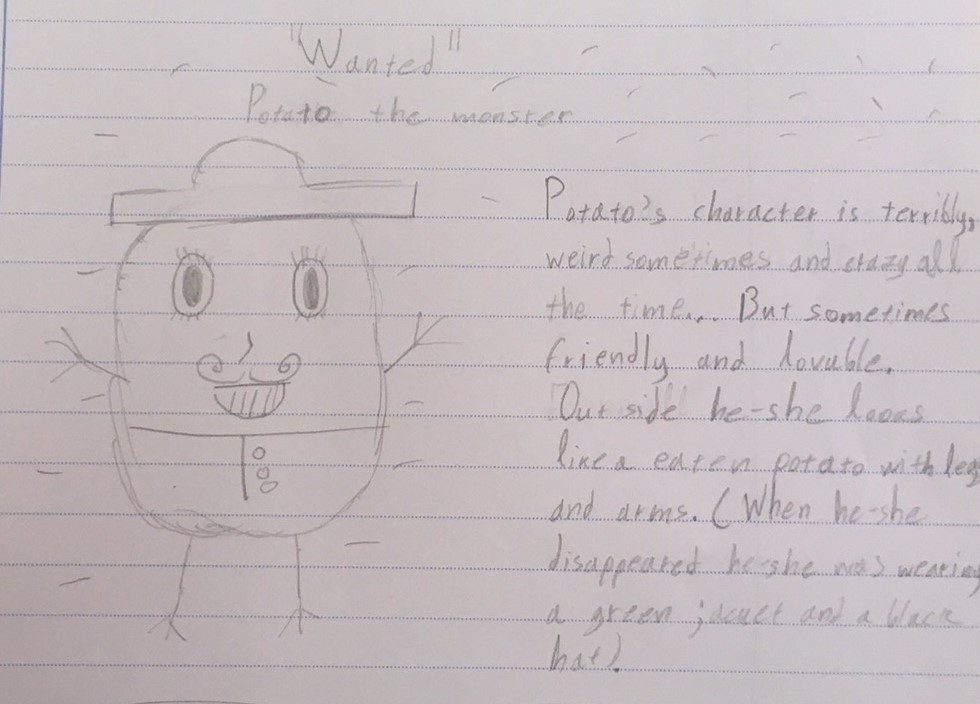 "Wanted"
Potato the monster
Potato's character is terribly,
weird sometimes and crazy all
the time... But sometimes
friendly and lovable.
Out side he-she looks
like a eaten potato with leg
and arms. (When he-she
disappeared he-she was wearing
a green jacket and a black
hat).